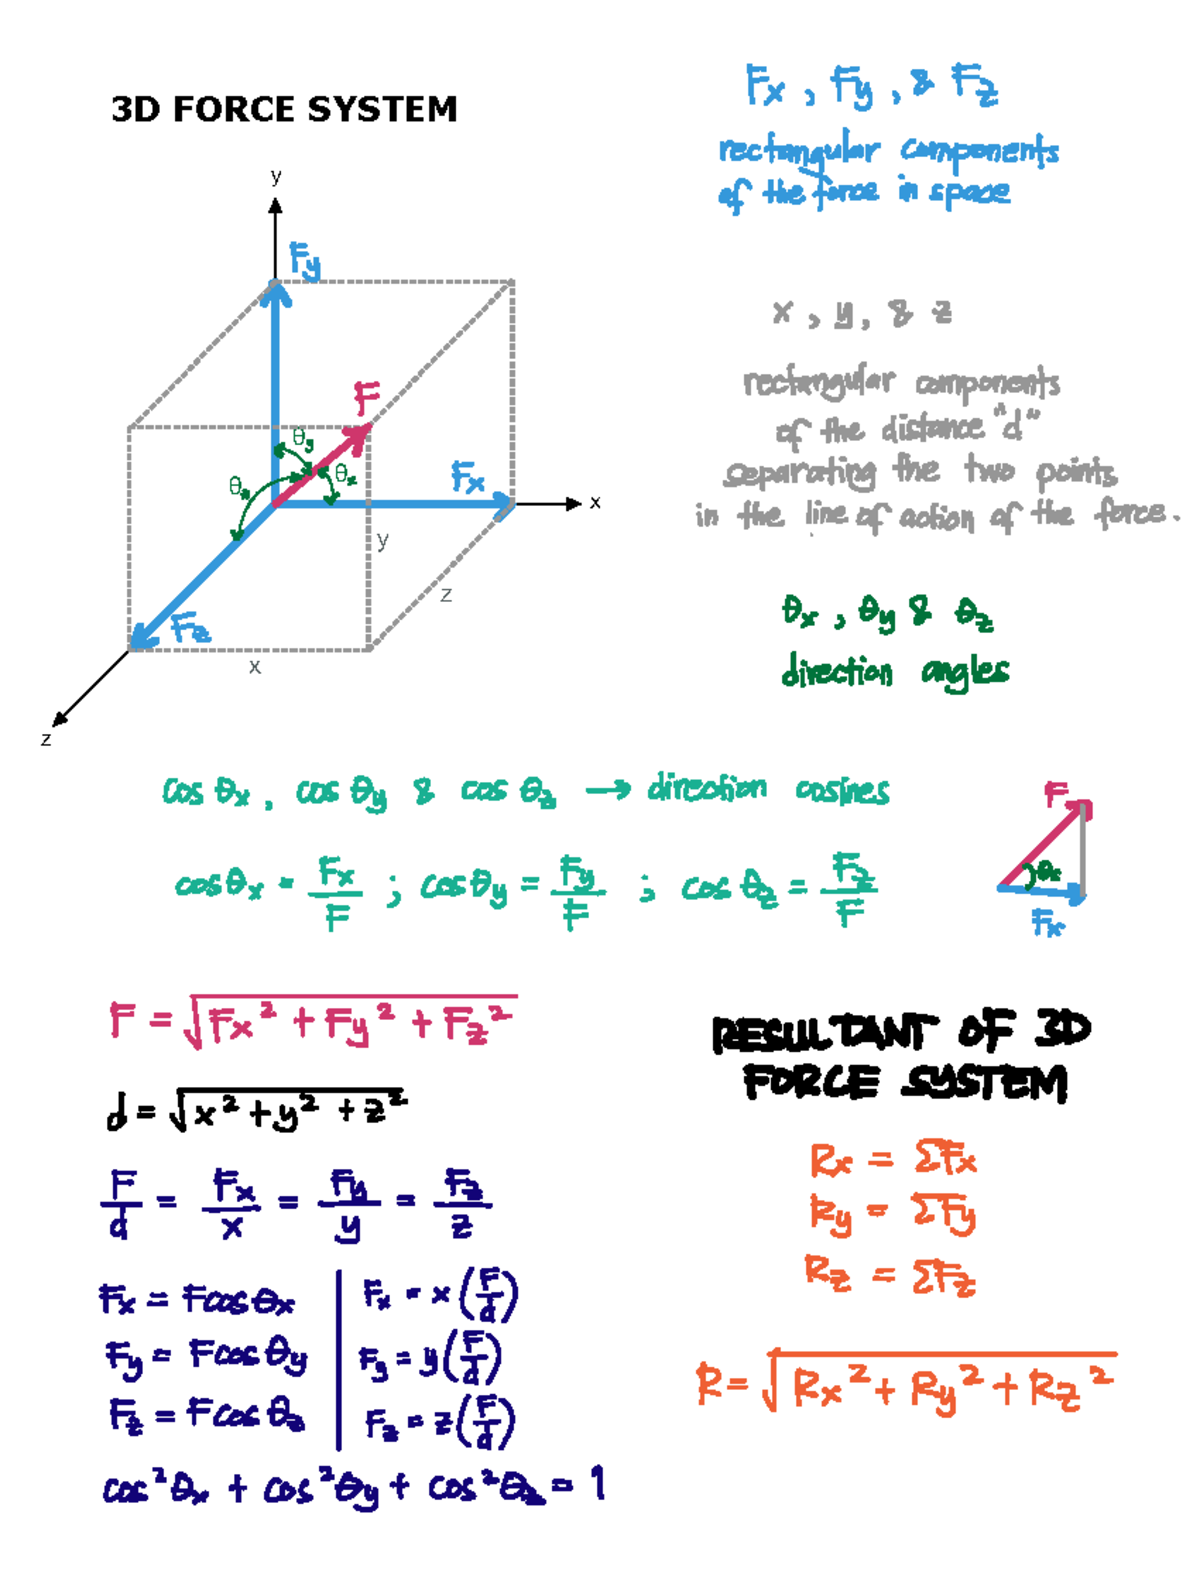 3D FORCE SYSTEM
y
Fy
F
θy
θx
θz
Fx
x
y
z
Fz
x
z
Fx, Fy, & Fz
rectangular components
of the force in space
x, y, & z
rectangular components
of the distance "d"
separating the two points
in the line of action of the force.
θx, θy & θz
direction angles
cos θx, cos θy & cos θz → direction cosines
cosθx = Fx/F ; cosθy = Fy/F ; cos θz = Fz/F
F
θx
Fx
F = √(Fx² + Fy² + Fz²)
d = √(x² + y² + z²)
F/d = Fx/x = Fy/y = Fz/z
Fx = Fcos θx
Fy = Fcos θy
Fz = Fcos θz
Fx = x(F/d)
Fy = y(F/d)
Fz = z(F/d)
cos²θx + cos²θy + cos²θz = 1
RESULTANT OF 3D
FORCE SYSTEM
Rx = ΣFx
Ry = ΣFy
Rz = ΣFz
R = √(Rx² + Ry² + Rz²)